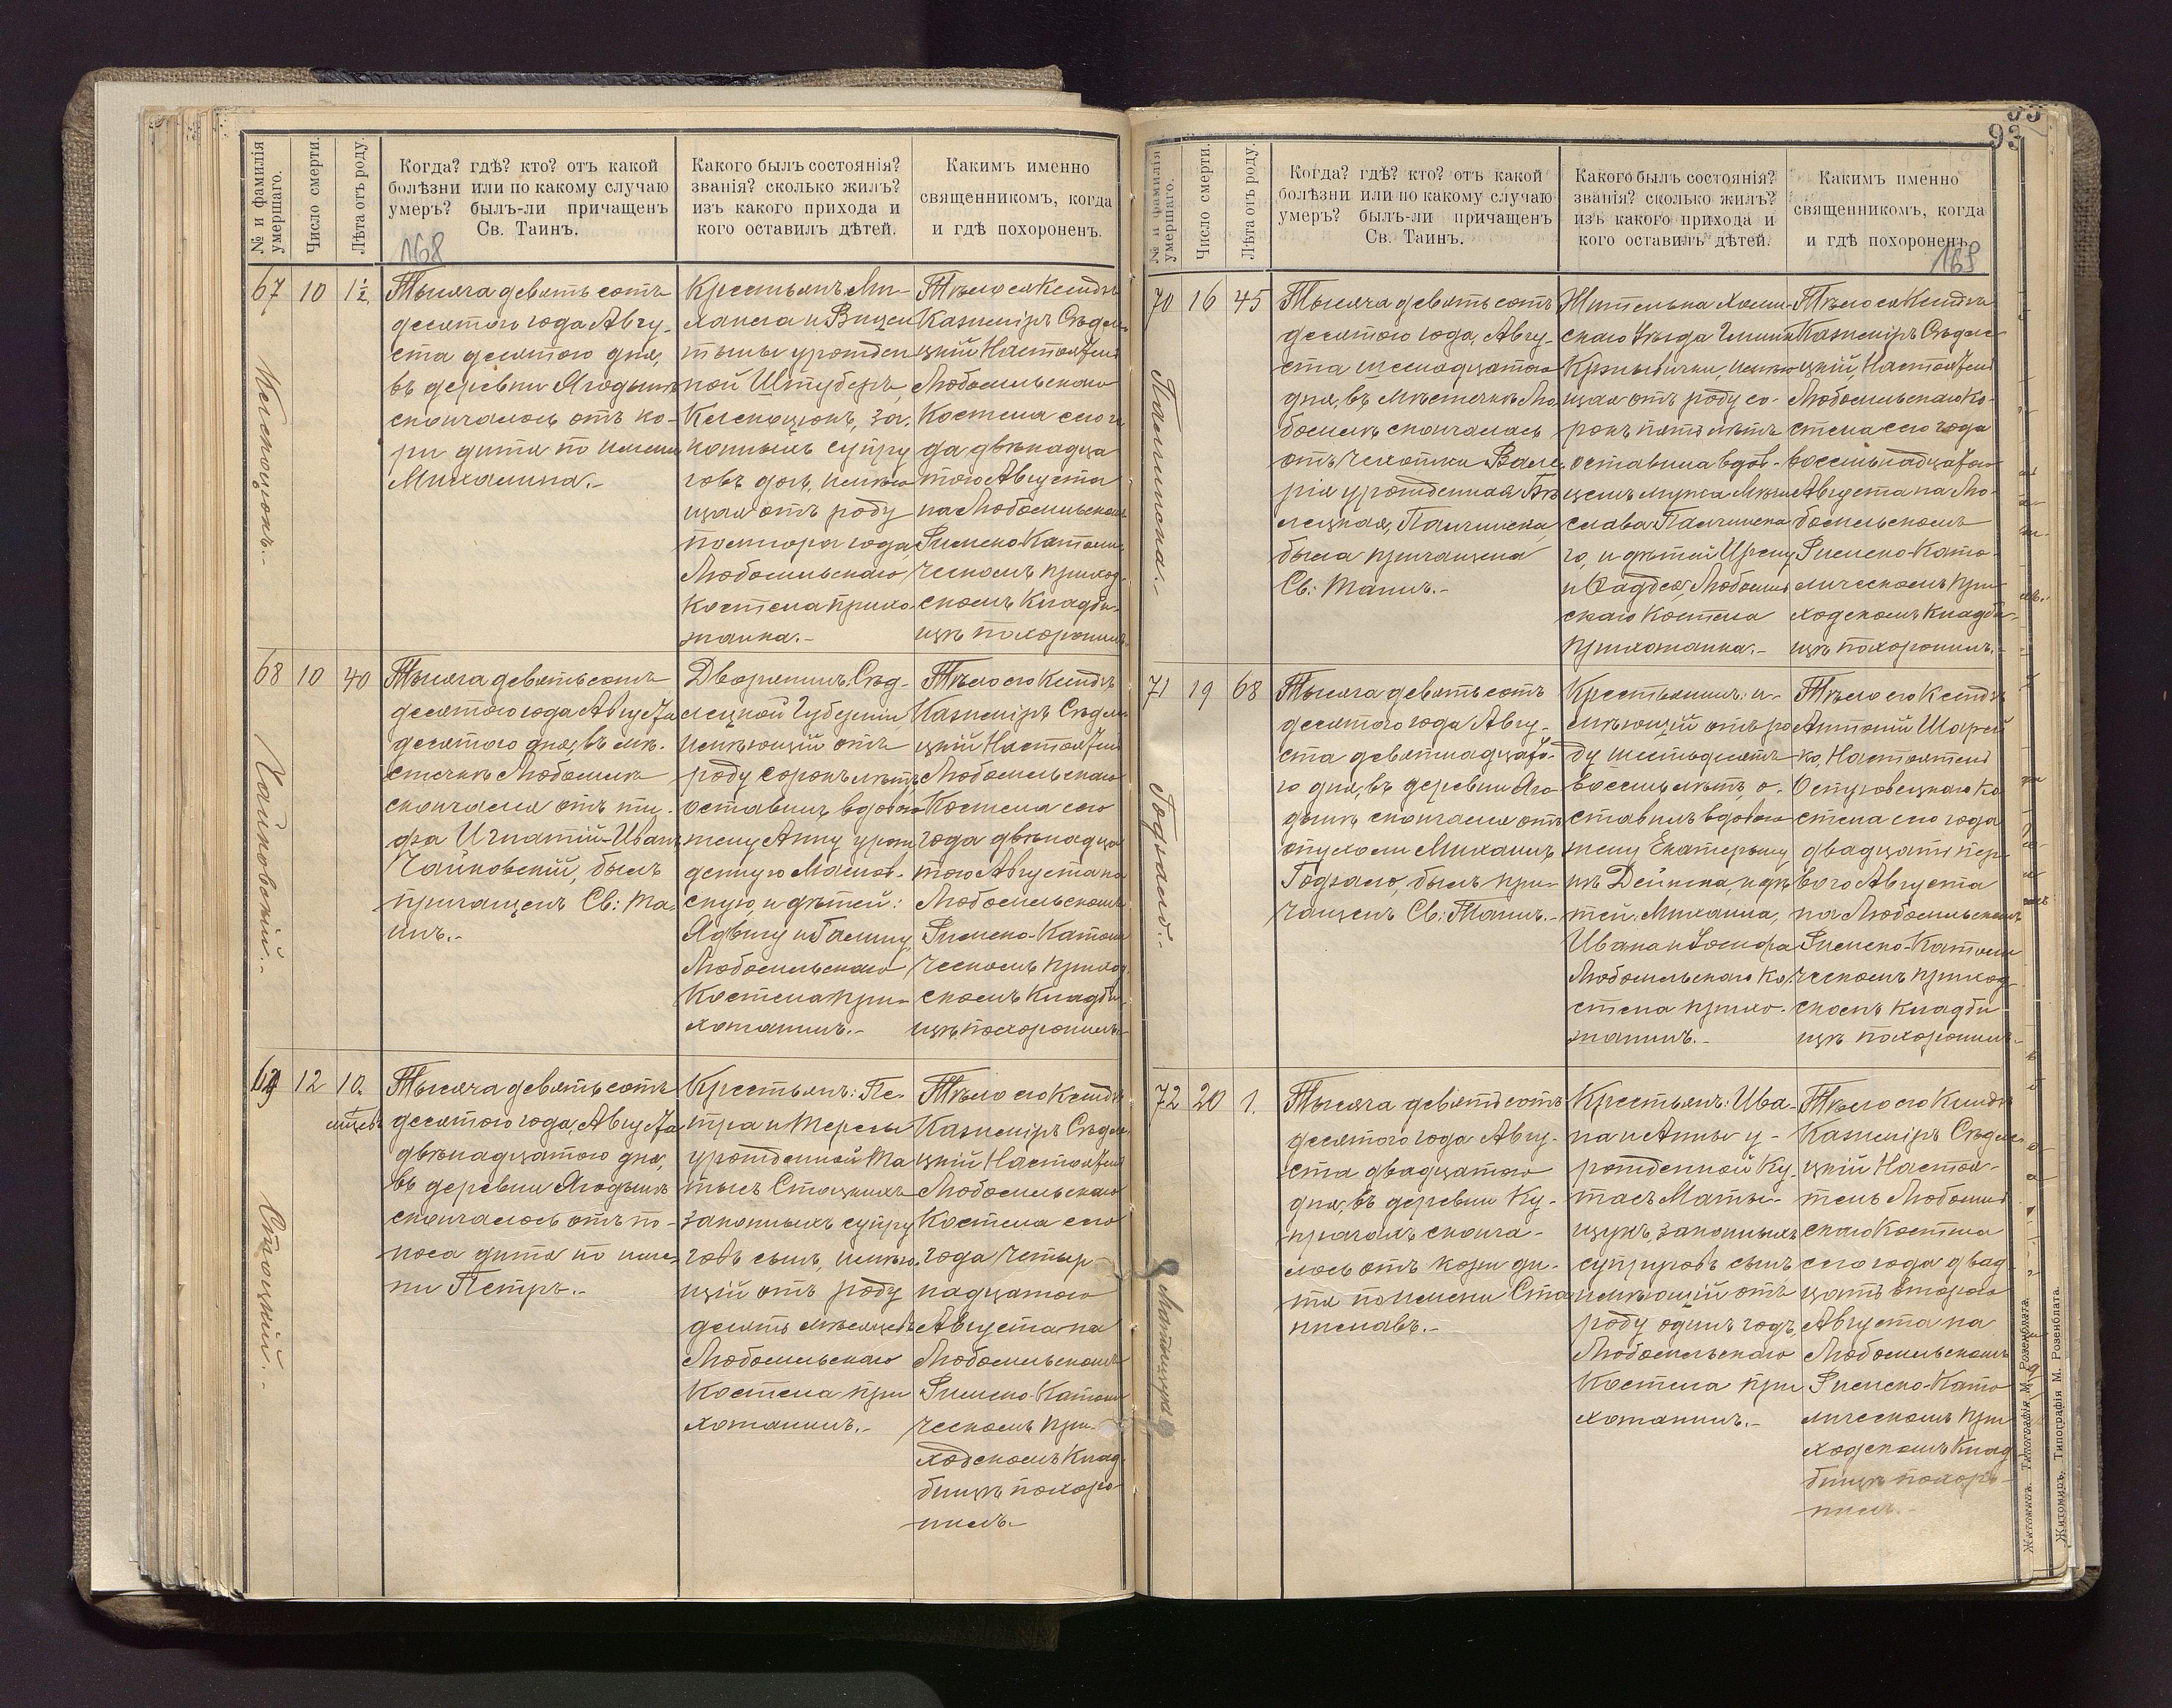 № и фамилія умершаго.
Число смерти.
Лѣта отъ роду.
Когда? гдѣ? кто? отъ какой
болѣзни или по какому случаю
умеръ? былъ-ли причащенъ
Св. Таинъ.
168
Какого былъ состоянія?
званія? сколько жилъ?
изъ какого прихода и
кого оставилъ дѣтей.
Какимъ именно
священникомъ, когда
и гдѣ похороненъ.
67
10
1½
Тысяча девятьсотъ
десятого года Авгу-
ста десятого дня,
въ деревни Ягодынѣ
скончалось отъ ко-
ри дитя по имени
Михалина.-
Крестьянъ Ми-
хаила и Вицен
тыны урожден
ной Штуберъ,
за-
конныхъ супру
говъ дочь, имѣю
щая отъ роду
полтора года
Любомльскаго
Костела прихо-
жанка.-
Тѣло ея Ксендзъ
Казиміръ Сѣдле-
цкій Настоятель
Любомльскаго
Костела сего го
да двѣнадца
того Августа
на Любомльскомъ
Римско-Католи
ческомъ приход-
скомъ Кладби-
щѣ похоронилъ.
68
Чайковскій.-
10
40
Тысяча девятьсотъ
десятого года Августа
десятого дня, въ мѣ-
стечкѣ Любомлѣ
скончался отъ ти-
фа Игнатій-Иванъ
Чайковскій, былъ
причащенъ Св: Та-
инъ.-
Дворянинъ Сѣд-
лецкой Губерніи
имѣющій отъ
роду сорокъ лѣтъ,
оставилъ вдовою
жену Анну урож
денную
скую, и дѣтей:
Ядвигу и Галину,
Любомльскаго
Костела при-
хожанинъ.-
Тѣло его Ксендзъ
Казиміръ Сѣдле-
цкій Настоятель
Любомльскаго
Костела сего
года двѣнадца
того Августа на
Любомльскомъ
Римско-Католи
ческомъ приход-
скомъ Кладби-
щѣ похоронилъ.-
69
Стацкій.-
12
10.
мѣсяцевъ
Тысяча девятьсотъ
десятого года, Августа
двѣнадцатого дня,
въ деревни Ягодынѣ
скончалось отъ по-
носа дитя по име-
ни Петръ.-
Крестьянъ: Пе-
тра и Терезы
урожденной Ма
тысъ Стацкихъ
законныхъ супру
говъ сынъ, имѣю-
щій отъ роду
десять мѣсяцевъ
Любомльскаго
Костела при
хожанинъ.-
Тѣло его Ксендзъ
Казиміръ Сѣдле-
цкій Настоятель
Любомльскаго
Костела сего
года четыр-
надцатого
Августа на
Любомльскомъ
Римско-Католи
ческомъ при-
ходскомъ Клад-
бищѣ похоро-
нилъ.-
93
№ и фамилія умершаго.
Число смерти.
Лѣта отъ роду.
Когда? гдѣ? кто? отъ какой
болѣзни или по какому случаю
умеръ? былъ-ли причащенъ
Св. Таинъ.
Какого былъ состоянія?
званія? сколько жилъ?
изъ какого прихода и
кого оставилъ дѣтей.
Какимъ именно
священникомъ, когда
и гдѣ похороненъ.
169
70
16
45
Тысяча девятьсотъ
десятого года, Авгу-
ста шестнадцатого
дня, въ мѣстечкѣ Лю-
бомлѣ скончалась
отъ чахотки Вале-
рія урожденная
была причащена
Св: Таинъ.-
Жителька Холм-
скаго Уѣзда Гмины
имѣю
щая отъ роду со-
рокъ пять лѣтъ
оставила вдов-
цемъ мужа Мѣчи
слава
го, и дѣтей Ирену
и Фаддея, Любомль
скаго Костела
прихожанка.-
Тѣло ея Ксендзъ
Казиміръ Сѣдле-
цкій, Настоятель
Любомльскаго Ко-
стела сего года
восемьнадцатого
Августа на Лю-
бомльскомъ
Римско-Като-
лическомъ при
ходскомъ Кладби-
щѣ похоронилъ.-
71
Годзало.-
19
68
Тысяча девятьсотъ
десятого года Авгу-
ста девятнадцато-
го дня, въ деревни Яго
дынѣ скончался отъ
опухоли Михаилъ
Годзало, былъ при-
чащенъ Св: Таинъ.-
Крестьянинъ: и-
мѣющій отъ ро
ду шестьдесятъ
восемь лѣтъ, о-
ставилъ вдовою
жену Екатерину
изъ Дейнека, и дѣ
тей: Михаила,
Ивана и Іосифа
Любомльскаго Ко-
стела прихо-
жанинъ.-
Тѣло его Ксендзъ
Антоній Шарей
ко, Настоятель
Островецкаго Ко
стела сего года
двадцать пер-
вого Августа
на Любомльскомъ
Римско-Католи
ческомъ приход-
скомъ Кладби
щѣ похоронилъ.-
72
Матыщукъ
20
1.
Тысяча девятьсотъ
десятого года Авгу-
ста двадцатого
дня, въ деревни Ку-
сконча-
лось отъ кори ди-
тя по имени Ста
ниславъ.-
Крестьянъ: Ива-
на и Анны у-
рожденной Ку-
тасъ Маты-
щукъ, законныхъ
супруговъ сынъ
имѣющій отъ
роду одинъ годъ,
Любомльскаго
Костела при
хожанинъ.-
Тѣло его Ксендзъ
Казиміръ Сѣдле-
цкій Настоя-
тель Любомль
скаго Костела
сего года двад-
цать второго
Августа на
Любомльскомъ
Римско-Като
лическомъ при
ходскомъ Клад
бищѣ похоро-
нилъ.-
Житомиръ. Типографія М. Розенблата.
Житомиръ. Типографія М. Розенблата.